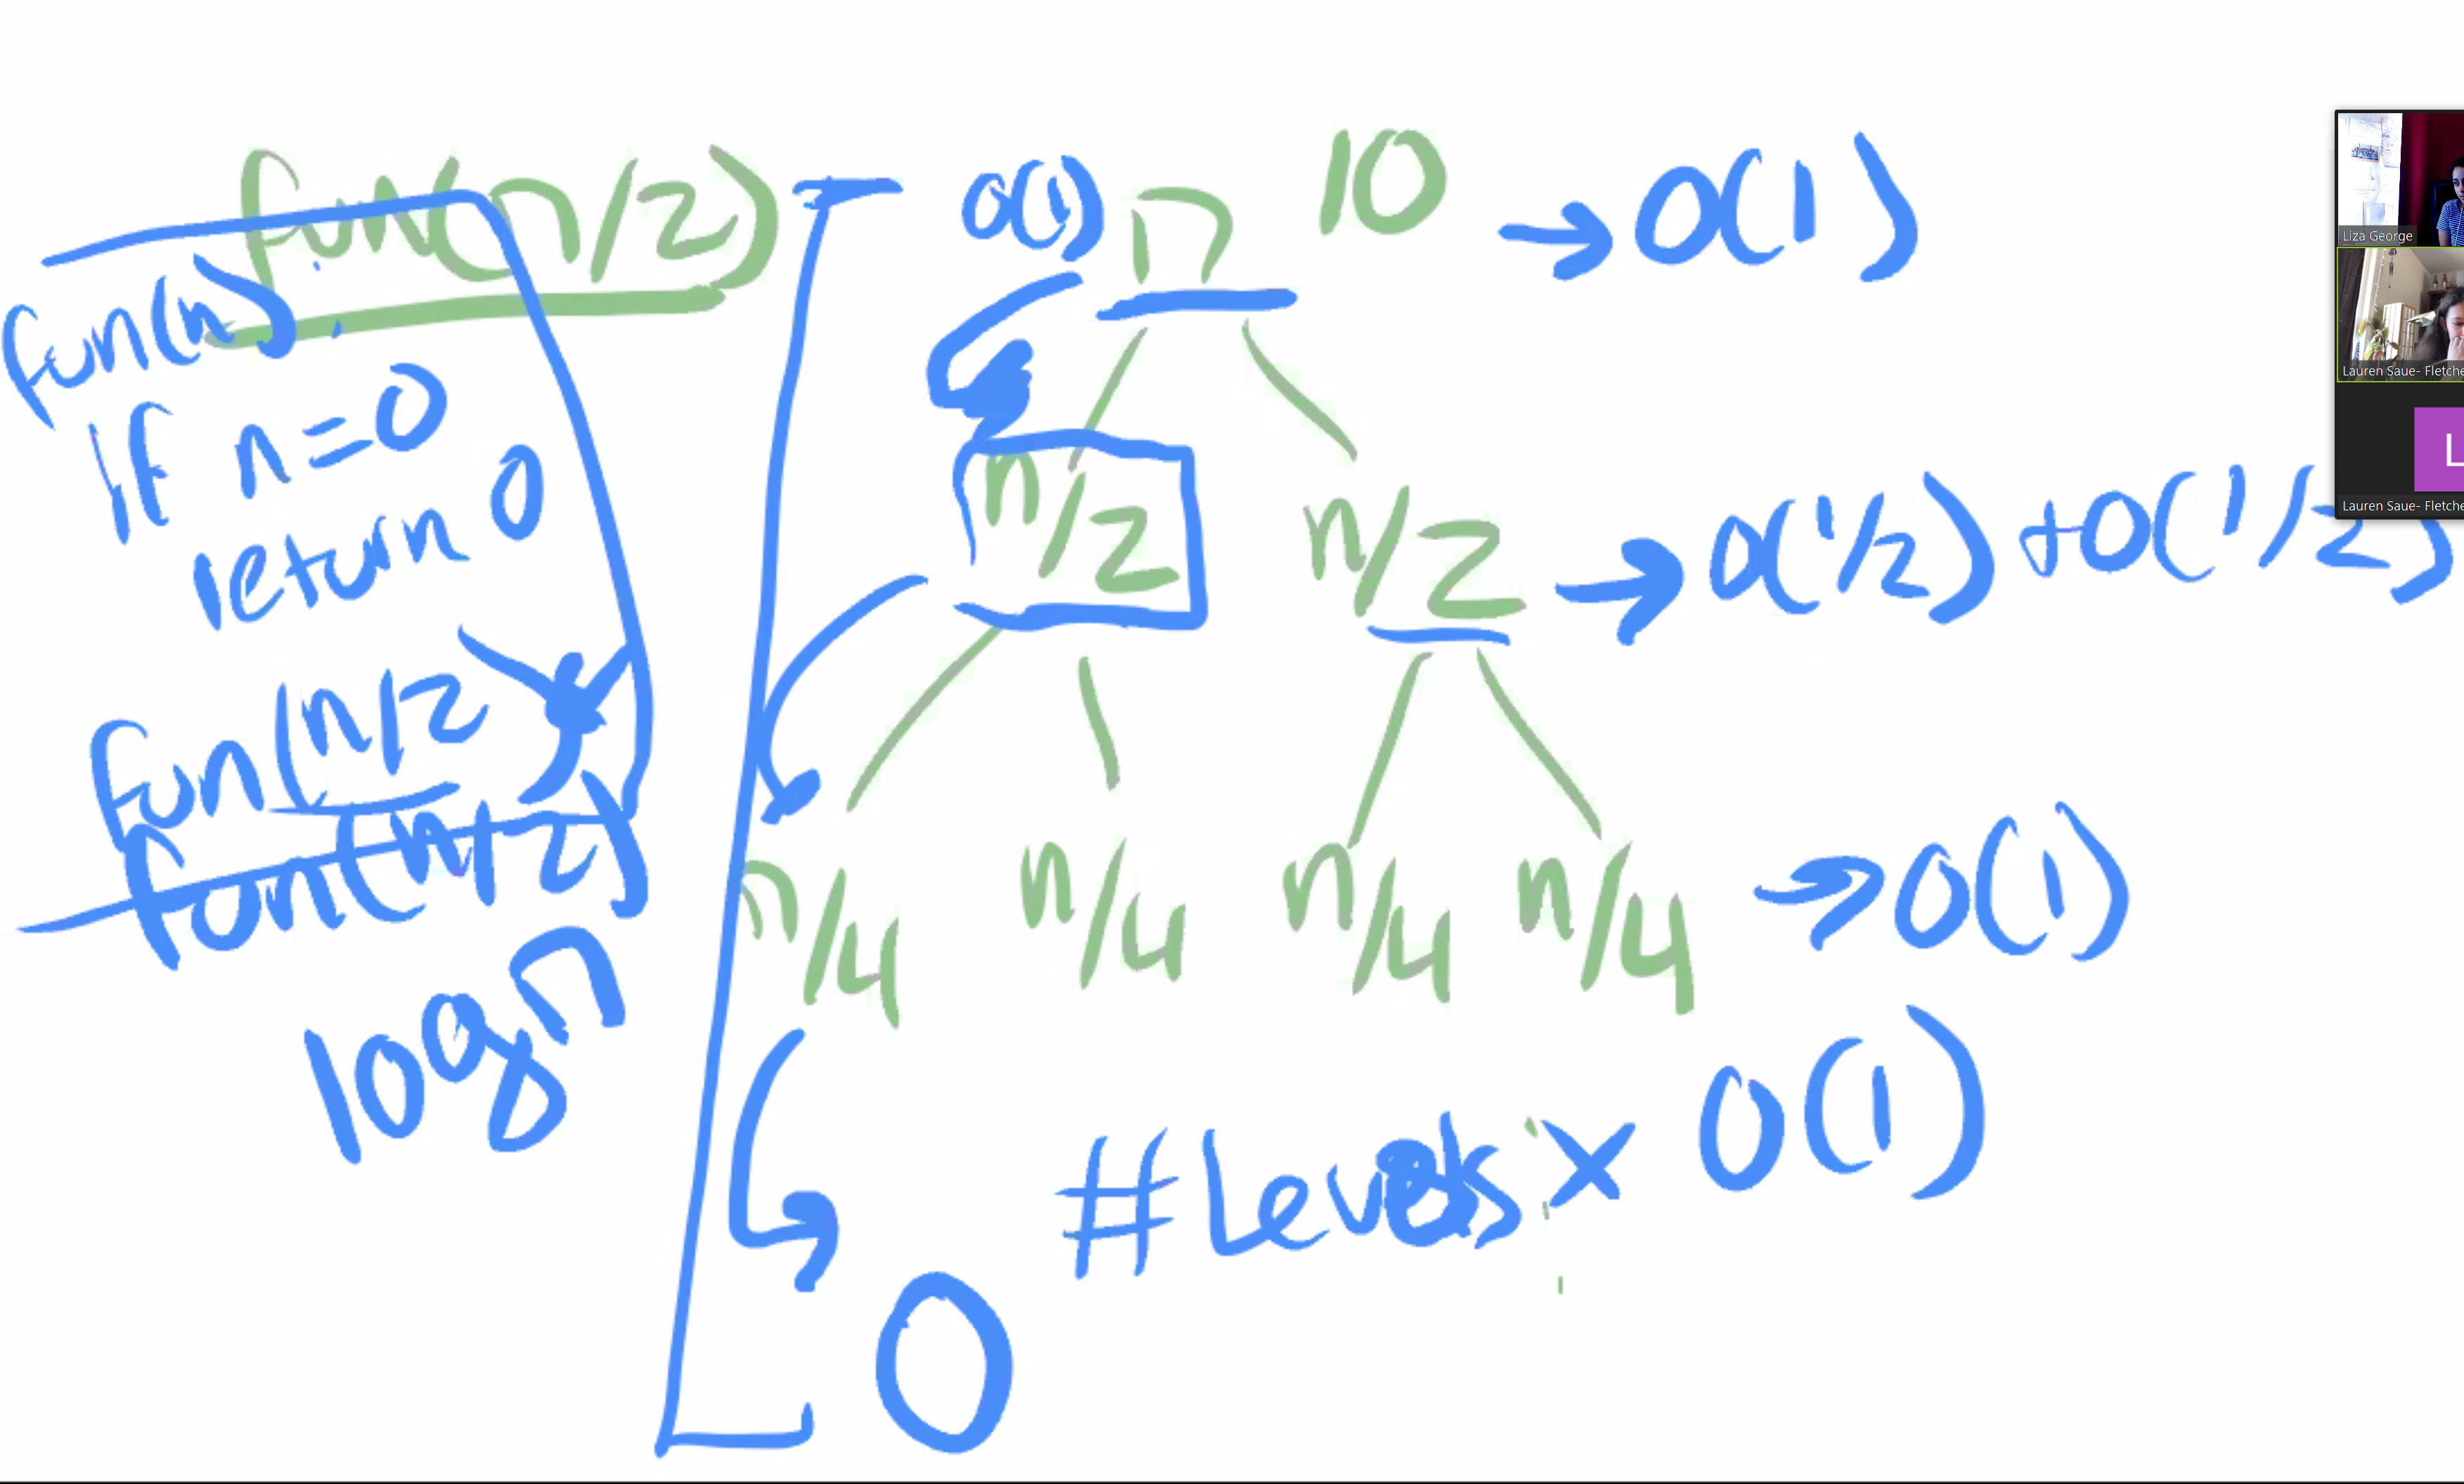 fun(n/2)
fun(n):
if n=0
return 0
fun(n/2)
fun(n/2)
log n
O(1) n 10 → O(1)
n/2 n/2 → O(1/2) + O(1/2)
n/4 n/4 n/4 n/4 → O(1)
# Levels × O(1)
0
Liza George
Lauren Saue- Fletche
L
Lauren Saue- Fletche